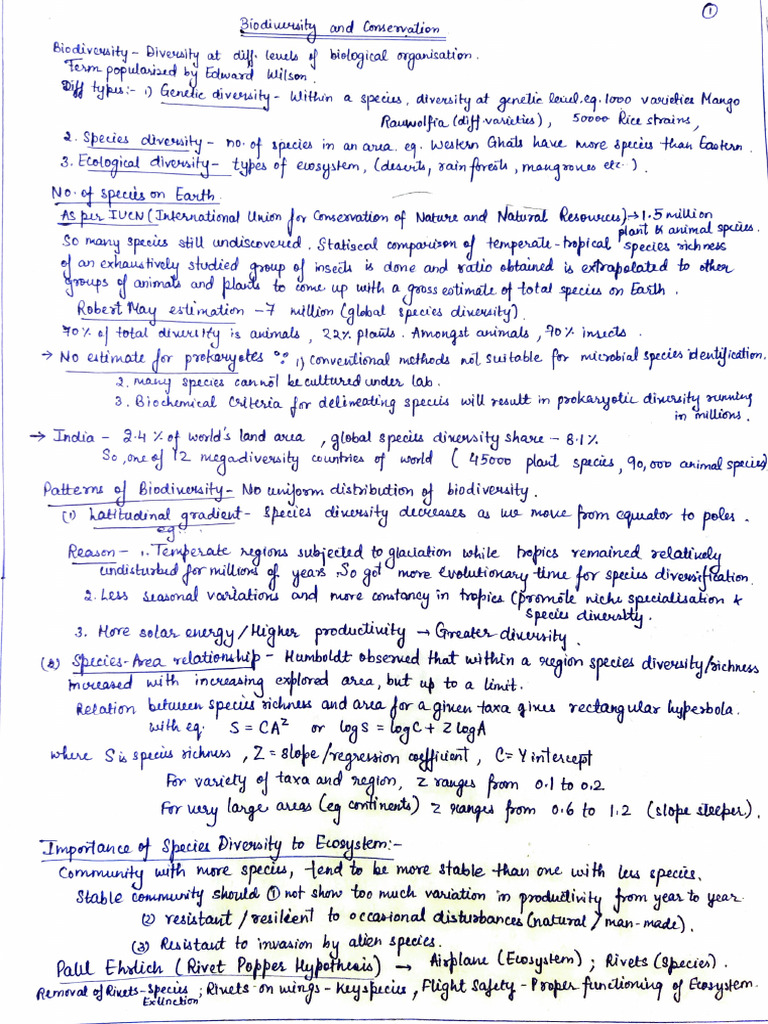 1
Biodiversity and Conservation
Biodiversity - Diversity at diff. levels of biological organisation.
Term popularized by Edward Wilson.
Diff types:- 1) Genetic diversity - Within a species, diversity at genetic level. eg. 1000 varieties Mango
Rauwolfia (diff. varieties), 50000 Rice strains,
2. Species diversity - no. of species in an area. eg. Western Ghats have more species than Eastern.
3. Ecological diversity - types of ecosystem, (deserts, rain forests, mangroves etc.).
No. of species on Earth
As per IUCN (International Union for Conservation of Nature and Natural Resources) → 1.5 million
plant & animal species.
So many species still undiscovered. Statiscal comparison of temperate-tropical species richness
of an exhaustively studied group of insects is done and ratio obtained is extrapolated to other
groups of animals and plants to come up with a gross estimate of total species on Earth.
Robert May estimation - 7 million (global species diversity).
70% of total diversity is animals, 22% plants. Amongst animals, 70% insects.
→ No estimate for prokaryotes ∵ 1) conventional methods not suitable for microbial species identification.
2. many species cannot be cultured under lab.
3. Biochemical criteria for delineating species will result in prokaryotic diversity running
in millions.
→ India - 2.4% of world's land area, global species diversity share - 8.1%
So, one of 12 megadiversity countries of world (45000 plant species, 90,000 animal species)
Patterns of Biodiversity - No uniform distribution of biodiversity.
(1) Latitudinal gradient - Species diversity decreases as we move from equator to poles.
eg:-
Reason - 1. Temperate regions subjected to glaciation while tropics remained relatively
undisturbed for millions of years. So got more evolutionary time for species diversification.
2. Less seasonal variations and more constancy in tropics (promote niche specialisation &
species diversity.
3. More solar energy/Higher productivity → Greater diversity.
(b) Species-Area relationship - Humboldt observed that within a region species diversity/richness
increased with increasing explored area, but up to a limit.
Relation between species richness and area for a given taxa gives rectangular hyperbola.
with eq. S = CA^Z or log S = log C + Z log A
where S is species richness, Z = slope/regression coefficient, C = Y intercept
For variety of taxa and region, Z ranges from 0.1 to 0.2
For very large areas (eg continents) Z ranges from 0.6 to 1.2 (slope steeper).
Importance of Species Diversity to Ecosystem:-
Community with more species, tend to be more stable than one with less species.
Stable community should ① not show too much variation in productivity from year to year
(2) resistant/resilient to occasional disturbances (natural/man-made).
(3) Resistant to invasion by alien species.
Paul Ehrlich (Rivet Popper Hypothesis) → Airplane (Ecosystem); Rivets (Species).
Removal of Rivets - Species ; Rivets on wings - Key species, Flight Safety - Proper functioning of Ecosystem.
Extinction